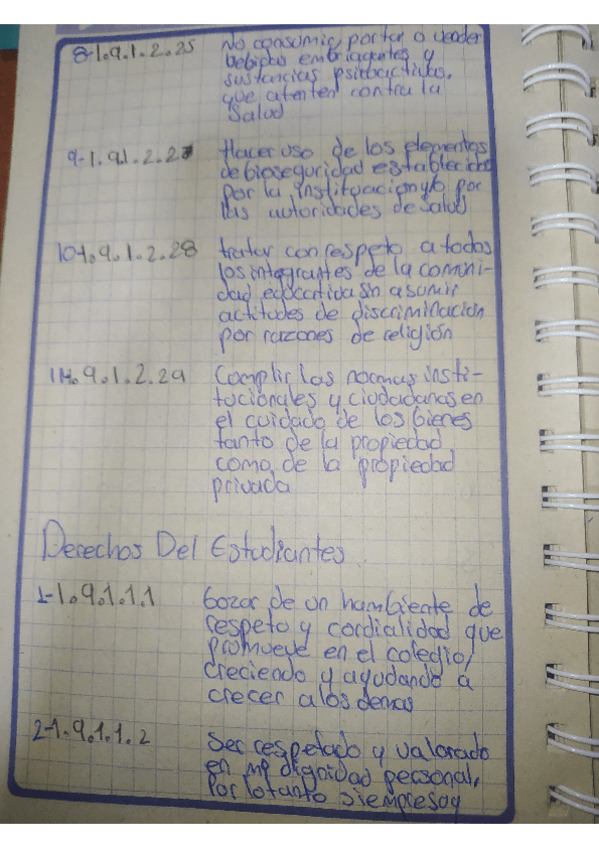 8-1.9.1.2.25 No consumir, portar o vender
bebidas embriagantes y
sustancias psicoactivas,
que atenten contra la
Salud
9-1.9.1.2.27 Hacer uso de los elementos
de bioseguridad establecidos
por la institucion y/o por
las autoridades de salud
10-1.9.1.2.28 tratar con respeto a todos
los integrantes de la comuni-
dad educativa sin asumir
actitudes de discriminacion
por razones de religión
11-1.9.1.2.29 Complir las normas insti-
tucionales y ciudadanas en
el cuidado de los bienes
tanto de la propiedad
como de la propiedad
privada
Derechos Del Estudiantes
1-1.9.1.1.1 Gozar de un hambiente de
respeto y cordialidad que
promueve en el colegio,
creciendo y ayudando a
crecer a los demas
2-1.9.1.1.2 Ser respetado y valorado
en mi dignidad personal,
Por lo tanto siempre soy